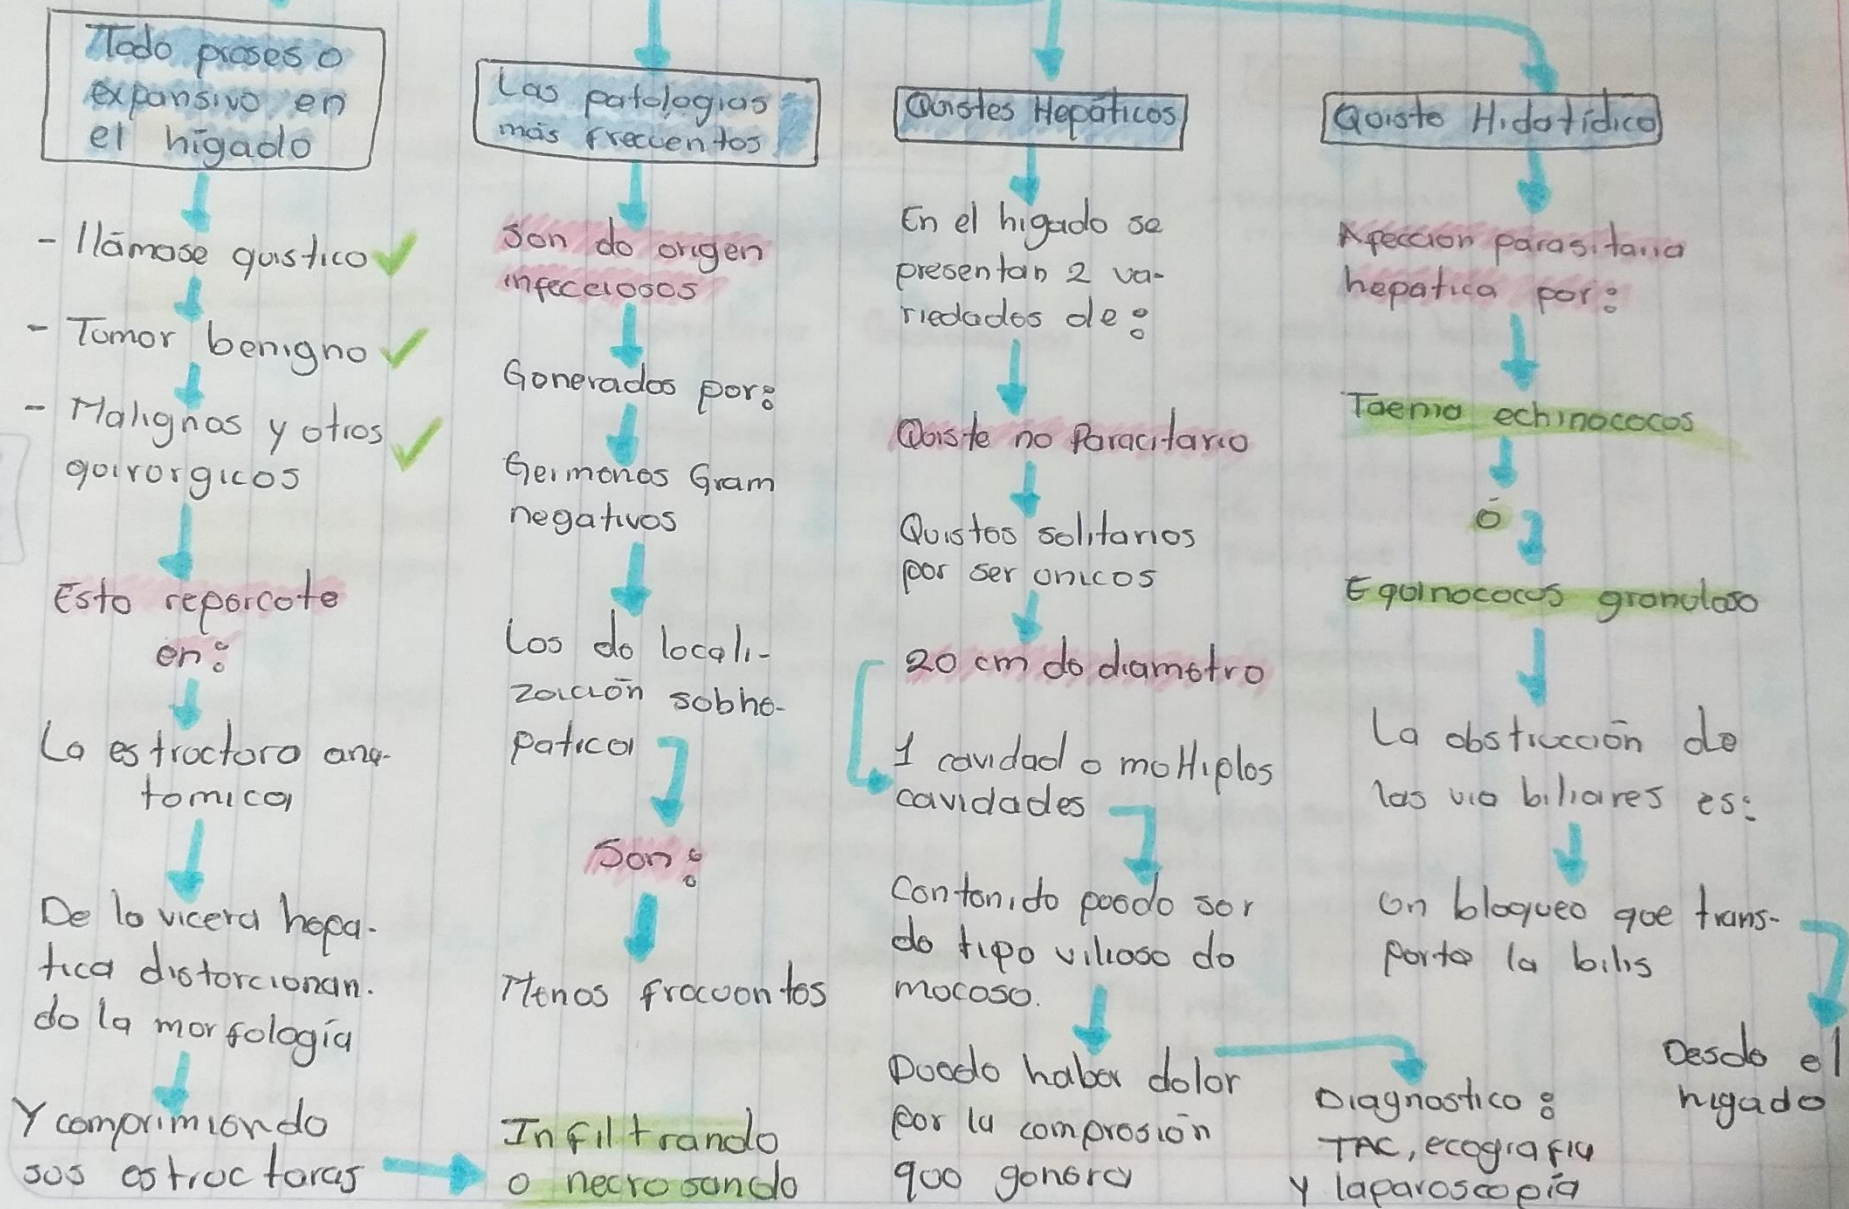 Todo proseso
expansivo en
el hígado
- llámase quistico
- Tumor benigno
- Malignas y otros
quirurgicos
Esto repercute
en:
La estructura ana-
tomica
De la vicera hepa-
tica distorcionan-
do la morfología
Y comprimiendo
sus estructuras
Las patologias
más frecuentes
Son de origen
infecciosos
Generados por:
Germenes Gram
negativos
Los de locali-
zación subhe-
patica
Son:
Menos frecuentes
Infiltrando
o necrosando
Quistes Hepáticos
En el higado se
presentan 2 va-
riedades de:
Quiste no Paracitario
Quistes solitarios
por ser unicos
20 cm de diametro
1 cavidad o multiples
cavidades
Contenido puede ser
de tipo villoso do
mocoso.
Puede haber dolor
por la compresión
que genera
Diagnostico:
TAC, ecografia
y laparoscopía
Quiste Hidatídico
Afeccion parasitaria
hepatica por:
Taenia echinococos
ó
Equinococus granuloso
La obstrucción de
las via biliares es:
un bloqueo que trans-
porta la bilis
Desde el
higado